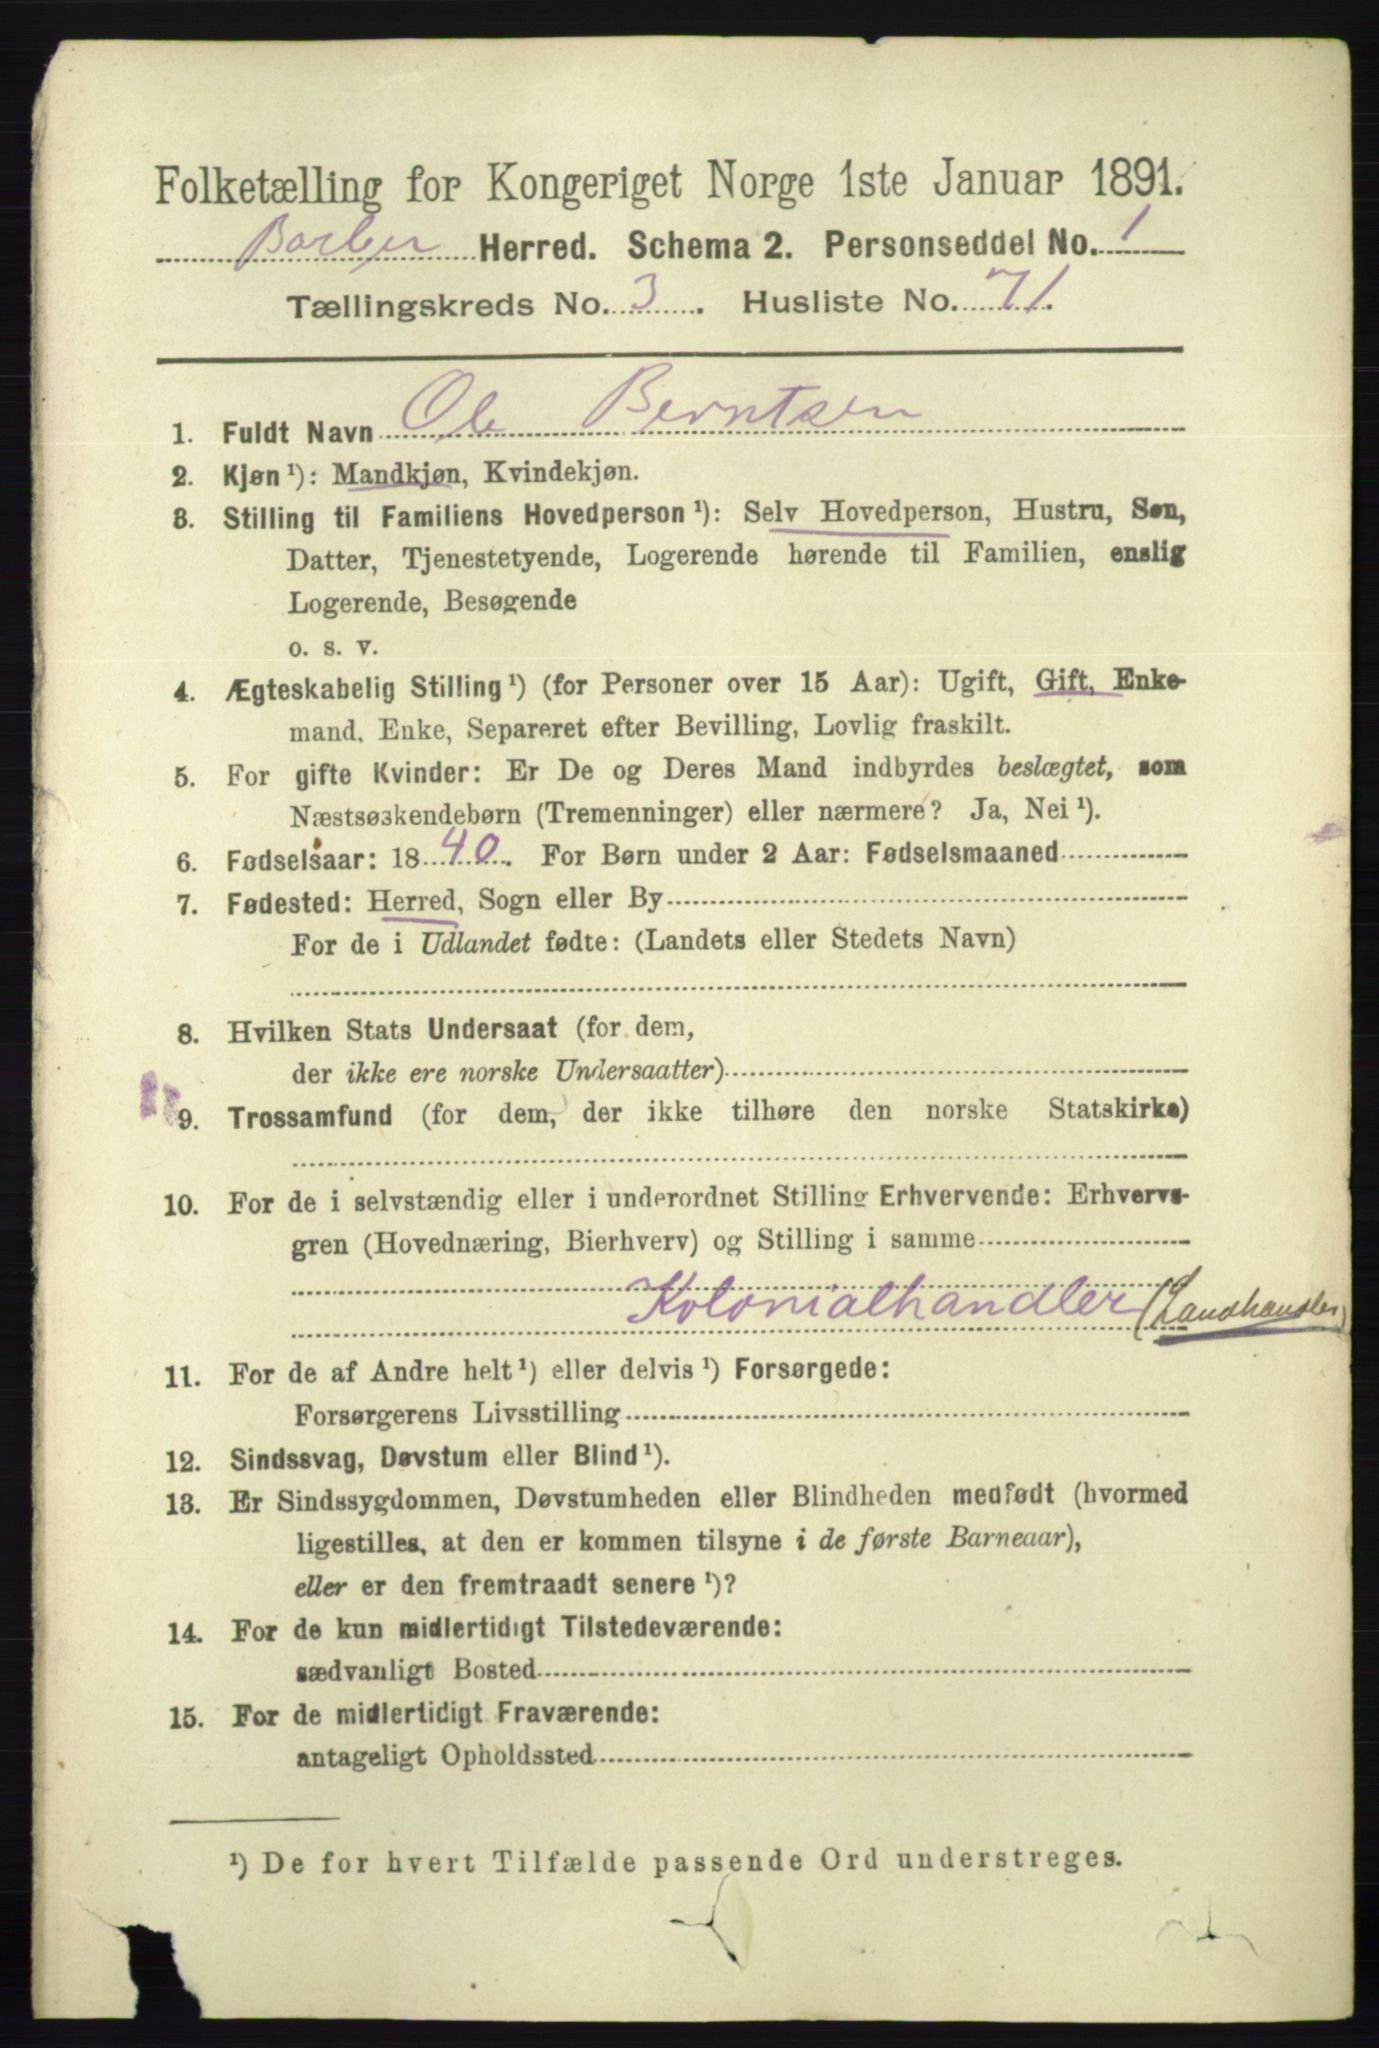 Folketælling for Kongeriget Norge 1ste Januar 1891.
Borge Herred. Schema 2. Personseddel No. 1
Tællingskreds No. 3. Husliste No. 71.
1. Fuldt Navn Ole Berntsen
2. Kjøn ¹): Mandkjøn, Kvindekjøn.
3. Stilling til Familiens Hovedperson ¹): Selv Hovedperson, Hustru, Søn,
Datter, Tjenestetyende, Logerende hørende til Familien, enslig
Logerende, Besøgende
o. s. v.
4. Ægteskabelig Stilling ¹) (for Personer over 15 Aar): Ugift, Gift, Enke-
mand, Enke, Separeret efter Bevilling, Lovlig fraskilt.
5. For gifte Kvinder: Er De og Deres Mand indbyrdes beslægtet, som
Næstsøskendebørn (Tremenninger) eller nærmere? Ja, Nei ¹).
6. Fødselsaar: 1840. For Børn under 2 Aar: Fødselsmaaned
7. Fødested: Herred, Sogn eller By
For de i Udlandet fødte: (Landets eller Stedets Navn)
8. Hvilken Stats Undersaat (for dem,
der ikke ere norske Undersaatter)
9. Trossamfund (for dem, der ikke tilhøre den norske Statskirke)
10. For de i selvstændig eller i underordnet Stilling Erhvervende: Erhvervs-
gren (Hovednæring, Bierhverv) og Stilling i samme
Kolonialhandler (Landhandler)
11. For de af Andre helt ¹) eller delvis ¹) Forsørgede:
Forsørgerens Livsstilling
12. Sindssvag, Døvstum eller Blind ¹).
13. Er Sindssygdommen, Døvstumheden eller Blindheden medfødt (hvormed
ligestilles, at den er kommen tilsyne i de første Barneaar),
eller er den fremtraadt senere ¹)?
14. For de kun midlertidigt Tilstedeværende:
sædvanligt Bosted
15. For de midlertidigt Fraværende:
antageligt Opholdssted
¹) De for hvert Tilfælde passende Ord understreges.